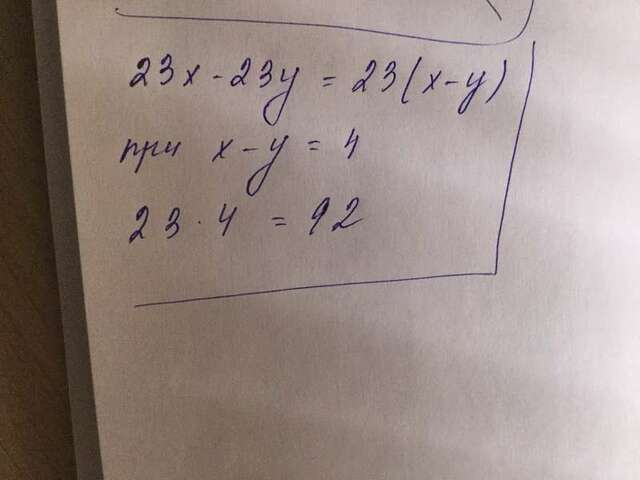 23x - 23y = 23(x-y)
при x - y = 4
23 · 4 = 92